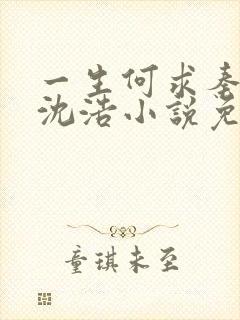 一生何求秦
沈浩小说免
童琪未至